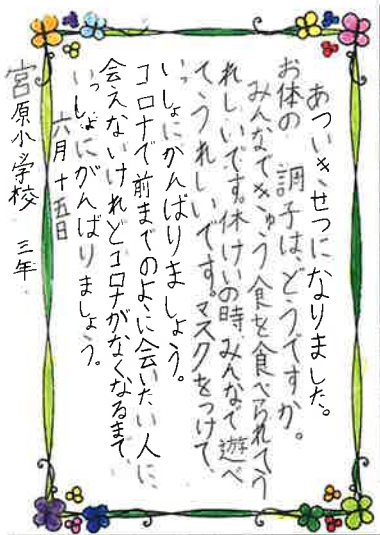 あついきせつになりました。
お体の 調子は、どうですか。
みんなできゅう食を食べられてう
れしいです。休けいの時、みんなで遊べ
てうれしいです。マスクをつけて、
いっしょにがんばりましょう。
コロナで前までのように会いたい人に、
会えないけれどコロナがなくなるまで、
いっしょにがんばりましょう。
六月十五日
宮原小学校 三年